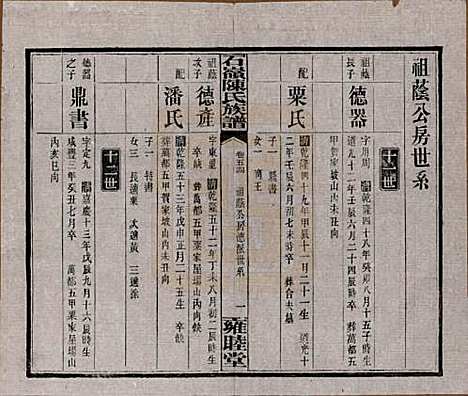 祖蔭公房世系
十一世
祖蔭長子
德器
字用周
清乾隆四十八年癸卯八月十五子時生
道光十二年壬辰六月二十四辰時卒
葬萬都五
甲智家坡山內未丑向
配
栗氏
清乾隆四十九年甲辰十一月二十一生
道光十
二年壬辰六月初七未時卒
葬合夫墓
子一
鼎書
女一
適王
石嶺陳氏族譜
卷三十四
祖蔭公房德派世系
一
雍睦堂
祖蔭次子
德產
字東
清乾隆五十二年丁未八月初二辰時生
卒缺
葬萬都五甲栗家屋場山內向缺
配
潘氏
清乾隆五十三年戊申正月二十五生
卒缺
葬萬都五甲智家坡山內未丑向
子一
女三
長適東
次適黃
三適涂
十二世
德器之子
鼎書
字定九
清嘉慶十三年戊辰九月十六辰時生
咸豐三年癸丑七月卒
葬萬都五甲栗家屋場山
丙亥巳向